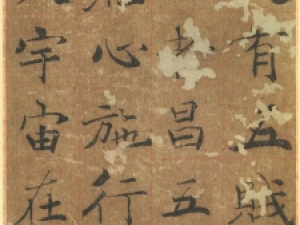 有五賊
者昌五
心施行
宇宙在